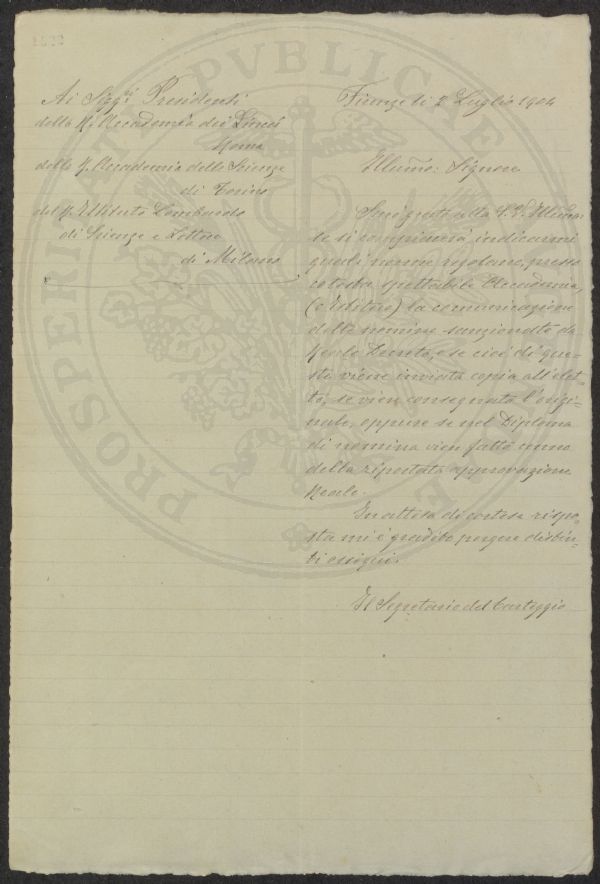 PROSPERITATI PVBLICAE
Ai Sigg.ri Presidenti
della R. Accademia dei Lincei
Roma
della R. Accademia delle Scienze
di Torino
del R. Istituto Lombardo
di Scienze e Lettere
di Milano
Firenze li 2 Luglio 1904
Illumo: Signore
Sarò grato alla S. V. Illuma:
se si compiacerà indicarmi
quali norme regolano, presso
cotesta spettabile Accademia,
(o Istituto) la comunicazione
delle nomine sanzionate da
Reale Decreto, e se cioè di que-
sti viene inviata copia all'elet-
to, se vien consegnato l'origi-
nale, oppure se nel Diploma
di nomina vien fatto cenno
della riportata approvazione
Reale.
In attesa di cortese rispo-
sta mi è gradito porgere distin-
ti ossequi.
Il Segretario del Carteggio